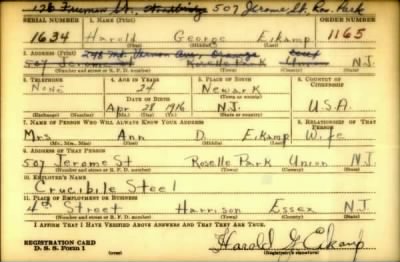 126 Freeman St., Woodbridge 507 Jerome St. Ros. Park
SERIAL NUMBER 1. NAME (Print) ORDER NUMBER
1634 Harold George Eikamp 1165
(First) (Middle) (Last)
2. ADDRESS (Print) Mt. Vernon Ave Orange Essex
507 Jerome St Roselle Park Union N.J.
(Number and street or R. F. D. number) (Town) (County) (State)
3. TELEPHONE 4. AGE IN YEARS 5. PLACE OF BIRTH 6. COUNTRY OF CITIZENSHIP
None 24 Newark
DATE OF BIRTH (Town or county)
Apr 28 1916 N.J. U.S.A.
(Exchange) (Number) (Mo.) (Day) (Yr.) (State or country)
7. NAME OF PERSON WHO WILL ALWAYS KNOW YOUR ADDRESS 8. RELATIONSHIP OF THAT PERSON
Mrs Ann D. Eikamp Wife
(Mr., Mrs., Miss) (First) (Middle) (Last)
9. ADDRESS OF THAT PERSON
507 Jerome St Roselle Park Union N.J.
(Number and street or R. F. D. number) (Town) (County) (State)
10. EMPLOYER'S NAME
Crucibile Steel
11. PLACE OF EMPLOYMENT OR BUSINESS
4th Street Harrison Essex N.J.
(Number and street or R. F. D. number) (Town) (County) (State)
I AFFIRM THAT I HAVE VERIFIED ABOVE ANSWERS AND THAT THEY ARE TRUE.
REGISTRATION CARD
D. S. S. Form 1 (over) Harold G. Eikamp
(Registrant's signature)